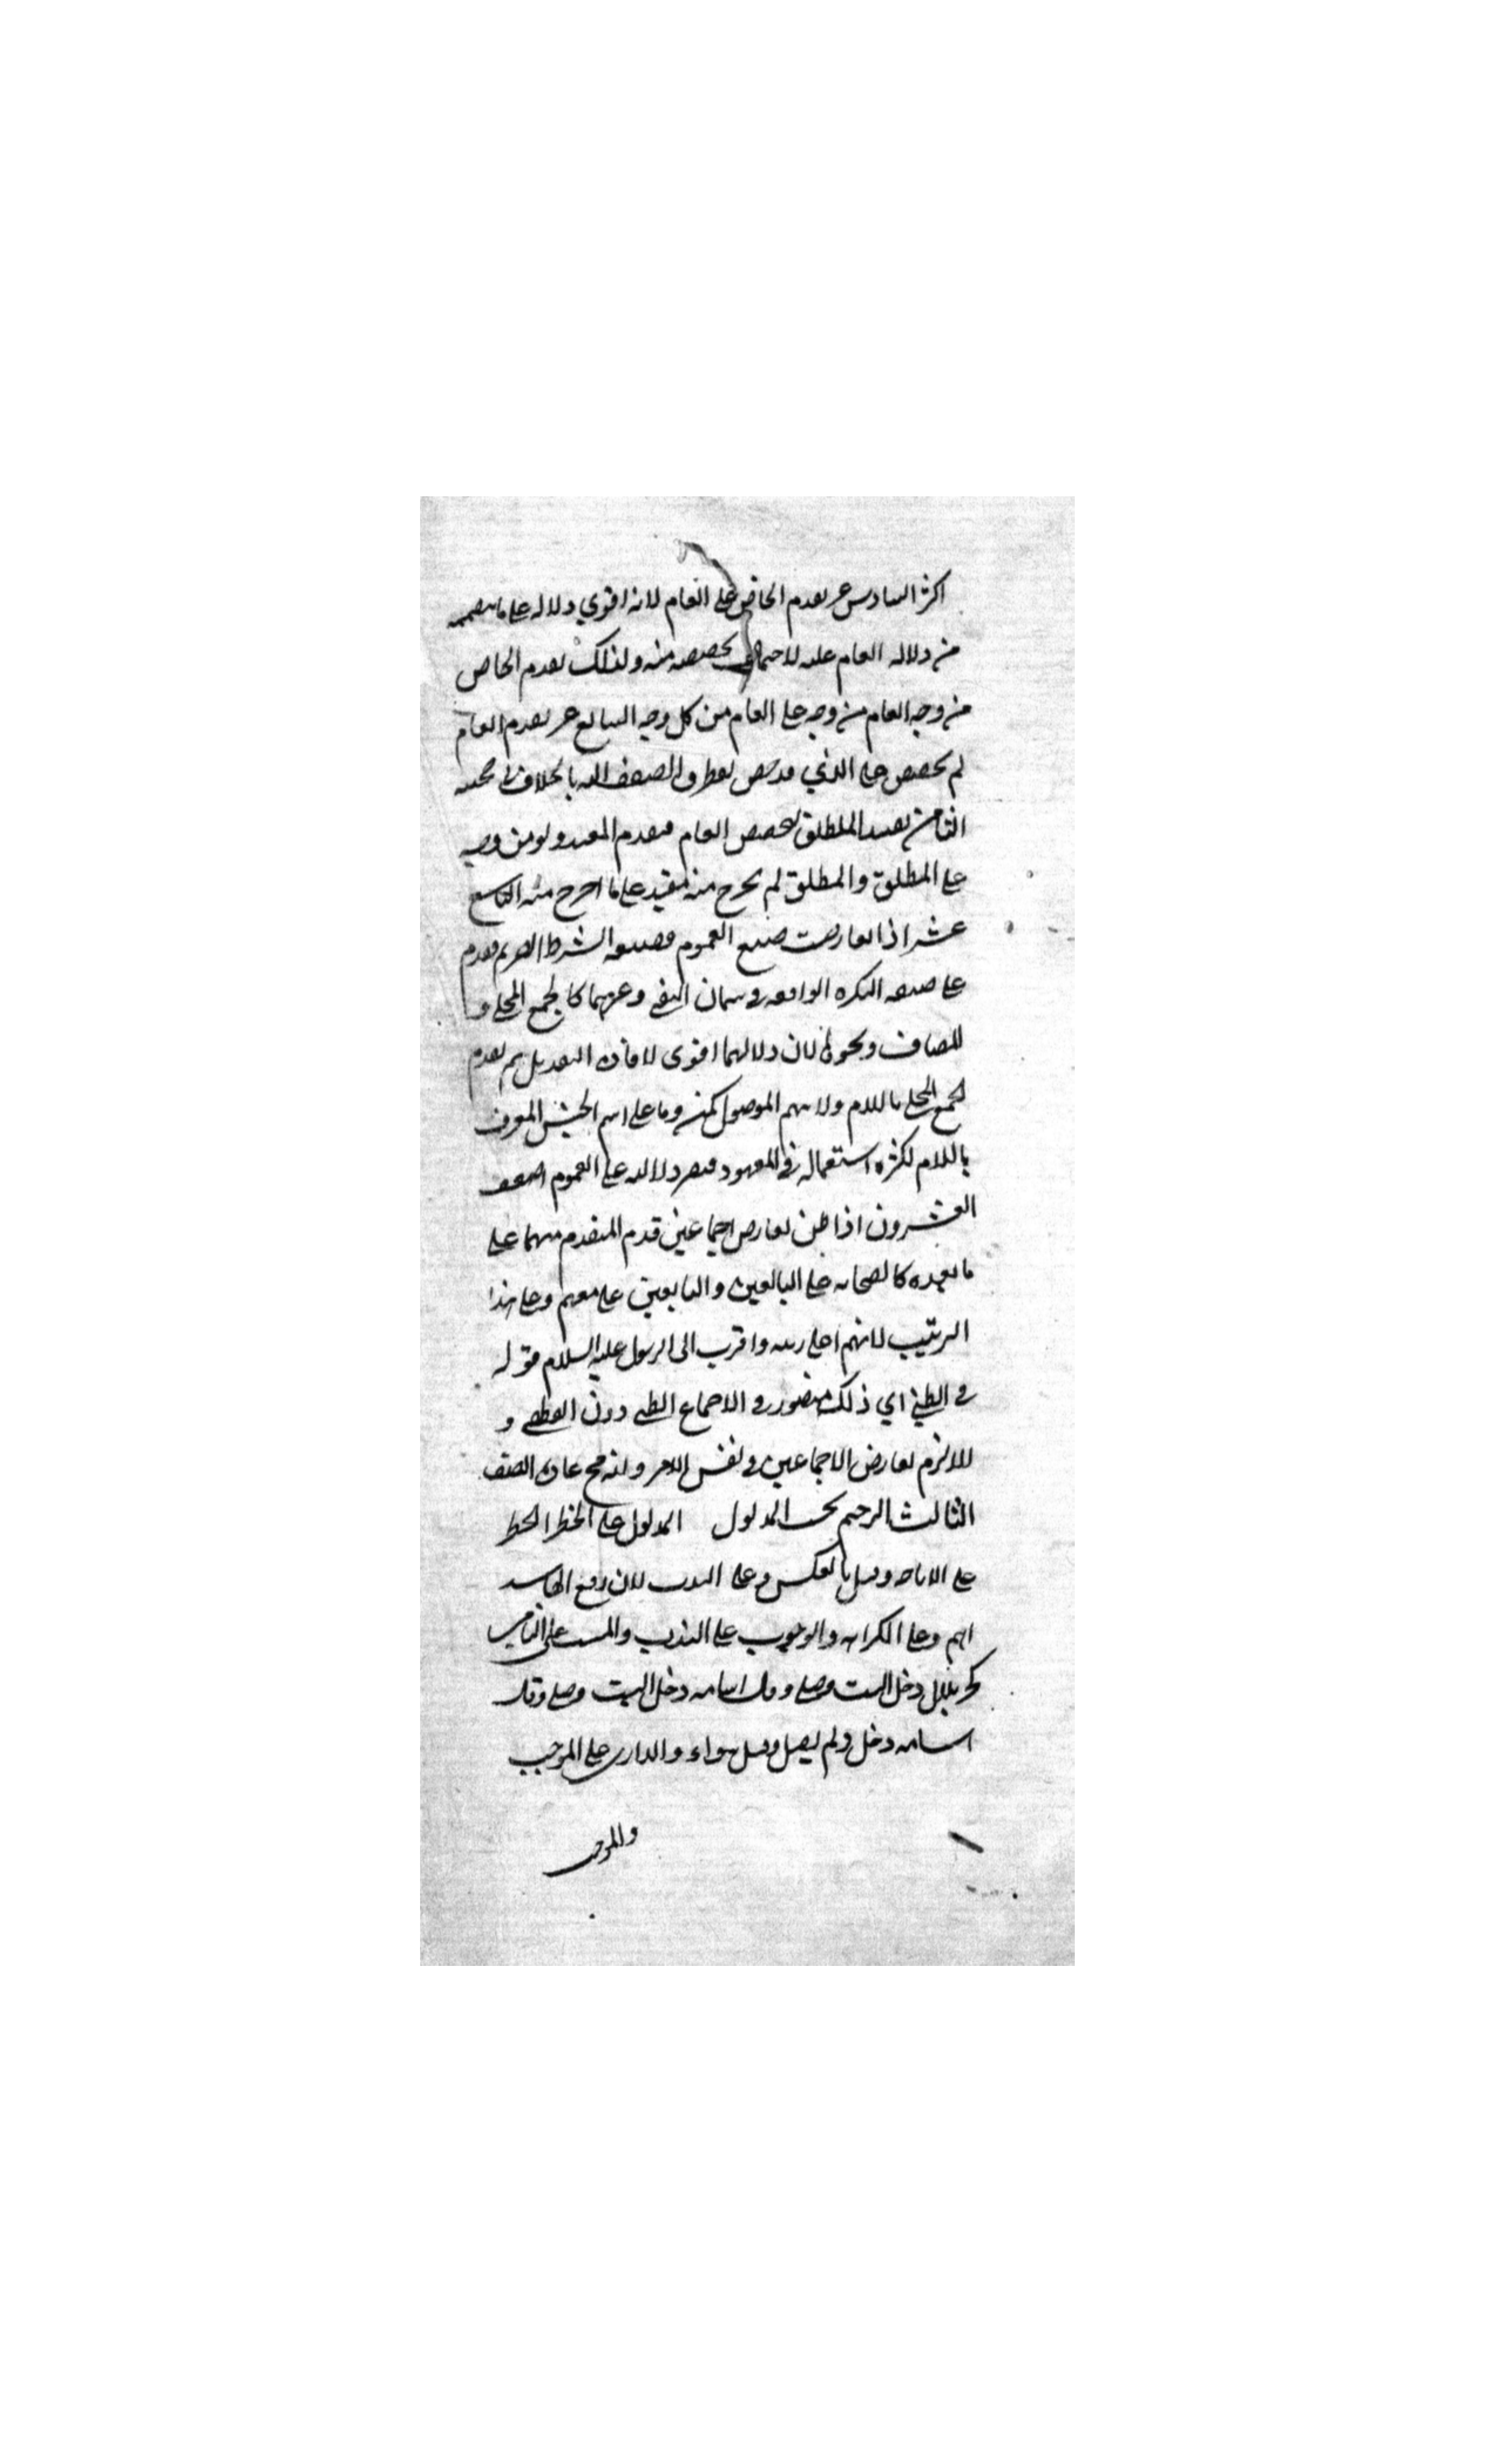 اكثر السادس عشر يقدم الخاص على العام لانه اقوي دلاله على ما يتضمنه
من دلاله العام عليه لاحتمال تخصيصه منه ولذلك يقدم الخاص
من وجه العام من وجه على العام من كل وجه السابع عشر يقدم العام
لم يخصص على الذي قد خص لتطرق الضعف اليه بالخلاف في حجيته
الثامن تقييد المطلق كتخصيص العام فيقدم المقيد ولو من وجه
على المطلق والمطلق لم يخرج منه مقيد على ما اخرج منه التاسع
عشر اذا تعارضت صيغ العموم فصيغه الشرط الصريح يقدم
على صيغه النكره الواقعه في سياق النفي وغيرهما كالجمع المحلى و
المضاف ونحوها لان دلالتهما اقوى لافاده التعديل ثم يقدم
الجمع المحلى باللام والاسم الموصول كمن وما على اسم الجنس المعرف
باللام لكثره استعماله في المعهود فيصير دلالته على العموم اضعف
العشرون اذا ظن تعارض اجماعين قدم المتقدم منهما على
ما بعده كالصحابه على التابعين والتابعين على تبعهم وعلى هذا
الترتيب لانهم اعلى رتبه واقرب الى الرسول عليه السلام قوله
في الظني اي ذلك متصور في الاجماع الظني دون القطعي و
الا لزم تعارض الاجماعين في نفس الامر وانه مح عاده الصنف
الثالث الترجيح بحسب المدلول المدلول على الحظر الحظر
على الاباحه وقيل بالعكس وعلى الندب لان دفع المفاسد
اهم وعلى الكراهه والوجوب على الندب والمثبت على النافي
كخبر بلال دخل البيت وصلى وقال اسامه دخل البيت وصلى وقال
اسامه دخل ولم يصل وقيل سواء والداري على الموجب
والموجب